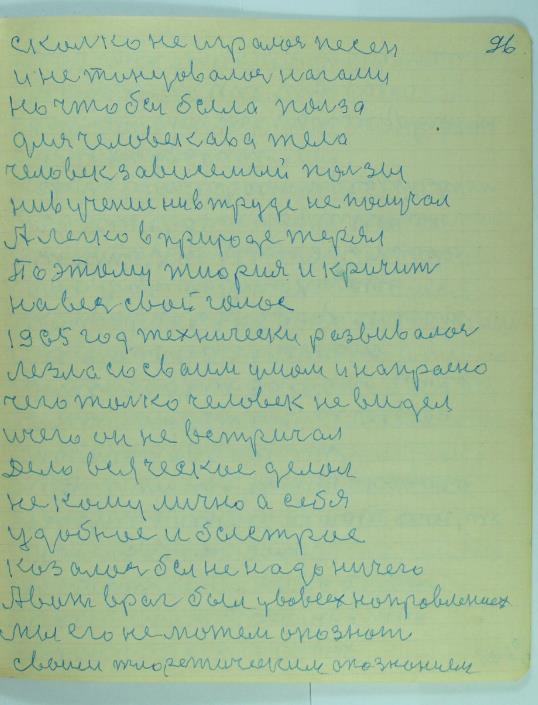 96
сколко не игралоя песен
и не танцовалоя нагами
но чтобы была ползa
для человекава тела
человек зависемый ползы
нивучение нивтруде не получал
А легко в природе терял
Поэтому тиория и кричит
на веся свой голос
1965 год технически развивалоя
лезла со сваим умом и напрасно
чего толко человек не видел
ичего он не встричал
Дело всяческое делол
не кому лично а себя
удобное и быстрое
козалоя бы не надо ничего
А вит враг был у вовсех нопровлениех
мы его не можем опознат
своим тиоретическим опознанием